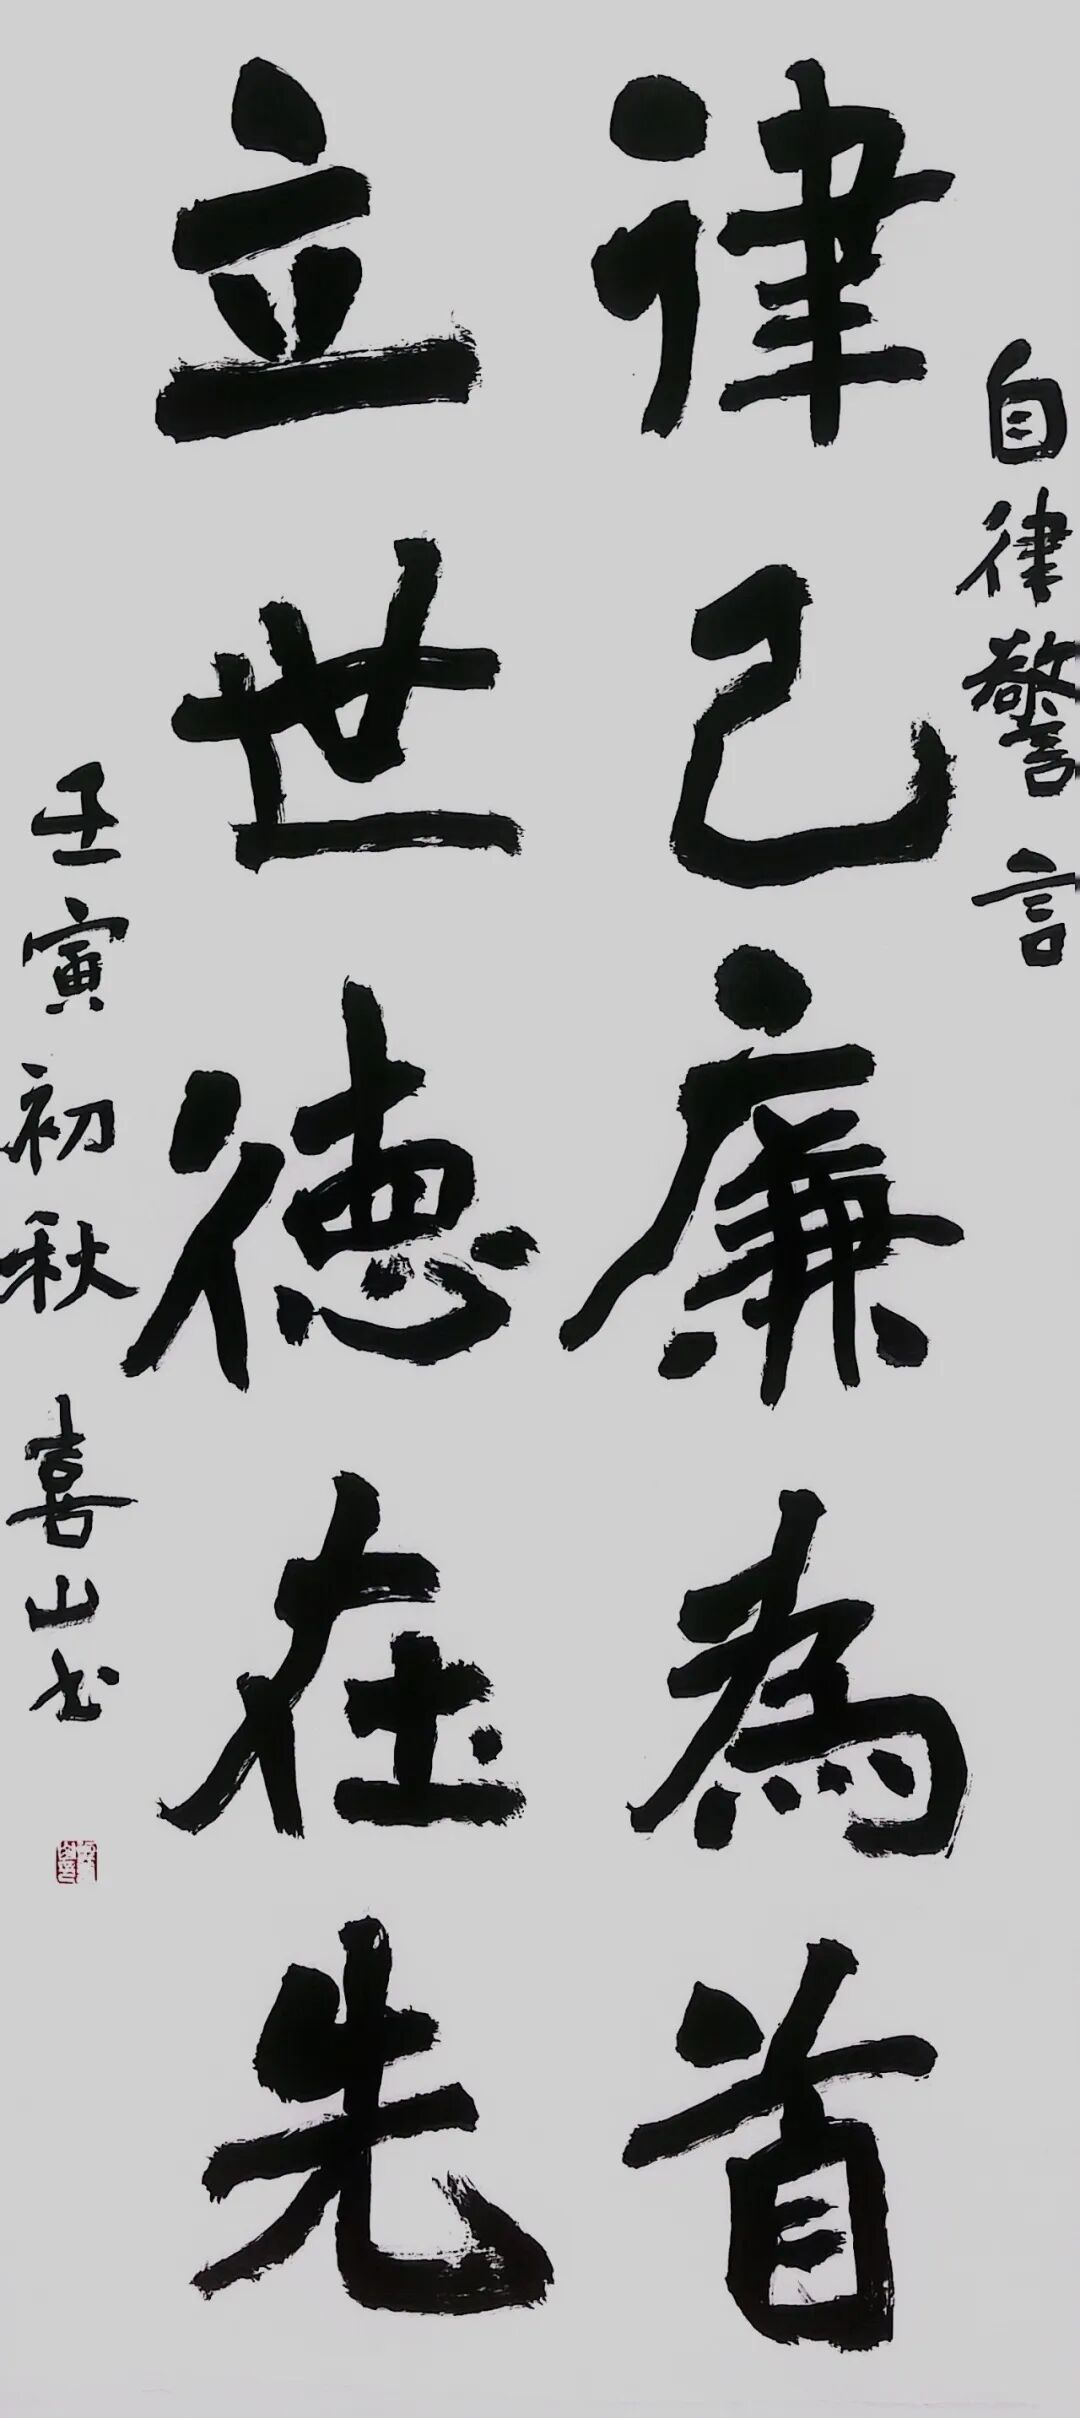 自律警言
律己廉為首
立世德在先
壬寅初秋 喜山书